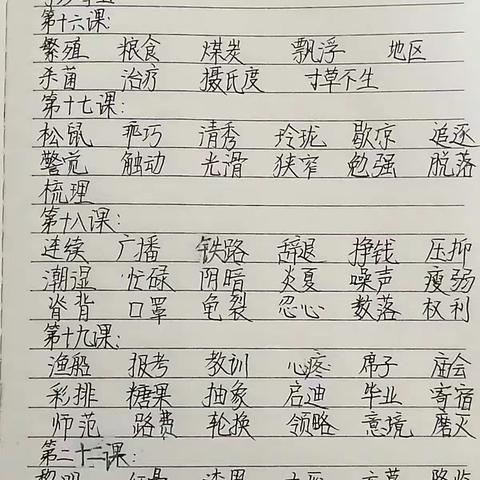 第十六课:
繁殖 粮食 煤炭 飘浮 地区
杀菌 治疗 摄氏度 寸草不生
第十七课:
松鼠 乖巧 清秀 玲珑 歇凉 追逐
警觉 触动 光滑 狭窄 勉强 脱落
梳理
第十八课:
连续 广播 铁路 辞退 挣钱 压抑
潮湿 忙碌 阴暗 炎夏 噪声 瘦弱
脊背 口罩 龟裂 忍心 数落 权利
第十九课:
渔船 报考 教训 心疼 席子 庙会
彩排 糖果 抽象 启迪 毕业 寄宿
师范 路费 轮换 领略 意境 磨灭
第二十二课: